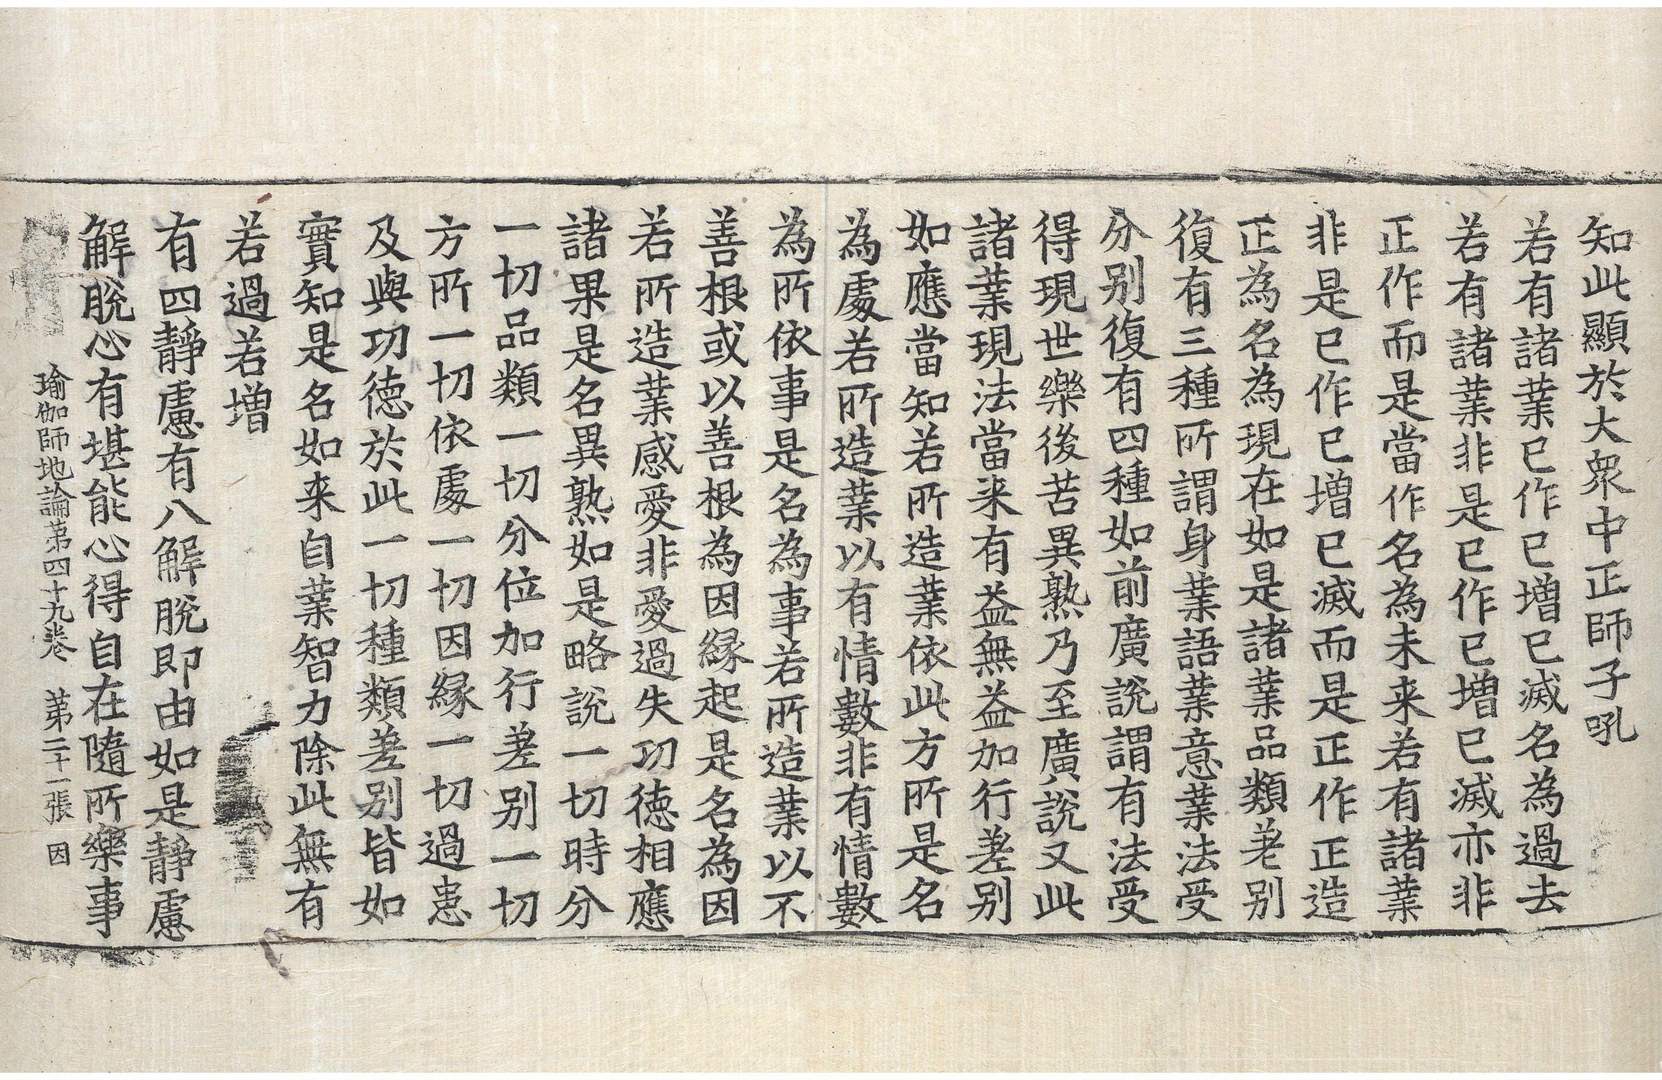 知此顯於大衆中正師子吼
若有諸業已作已增已滅名為過去
若有諸業非是已作已增已滅亦非
正作而是當作名為未来若有諸業
非是已作已增已滅而是正作正造
正為名為現在如是諸業品類差别
復有三種所謂身業語業意業法受
分别復有四種如前廣說謂有法受
得現世樂後苦異熟乃至廣說又此
諸業現法當来有益無益加行差别
如應當知若所造業依此方所是名
為處若所造業以有情數非有情數
為所依事是名為事若所造業以不
善根或以善根為因緣起是名為因
若所造業感愛非愛過失功德相應
諸果是名異熟如是略說一切時分
一切品類一切分位加行差别一切
方所一切依處一切因緣一切過患
及與功德於此一切種類差别皆如
實知是名如来自業智力除此無有
若過若增
有四靜慮有八解脫即由如是靜慮
解脫心有堪能心得自在隨所樂事
瑜伽師地論第四十九卷 第二十一張 因